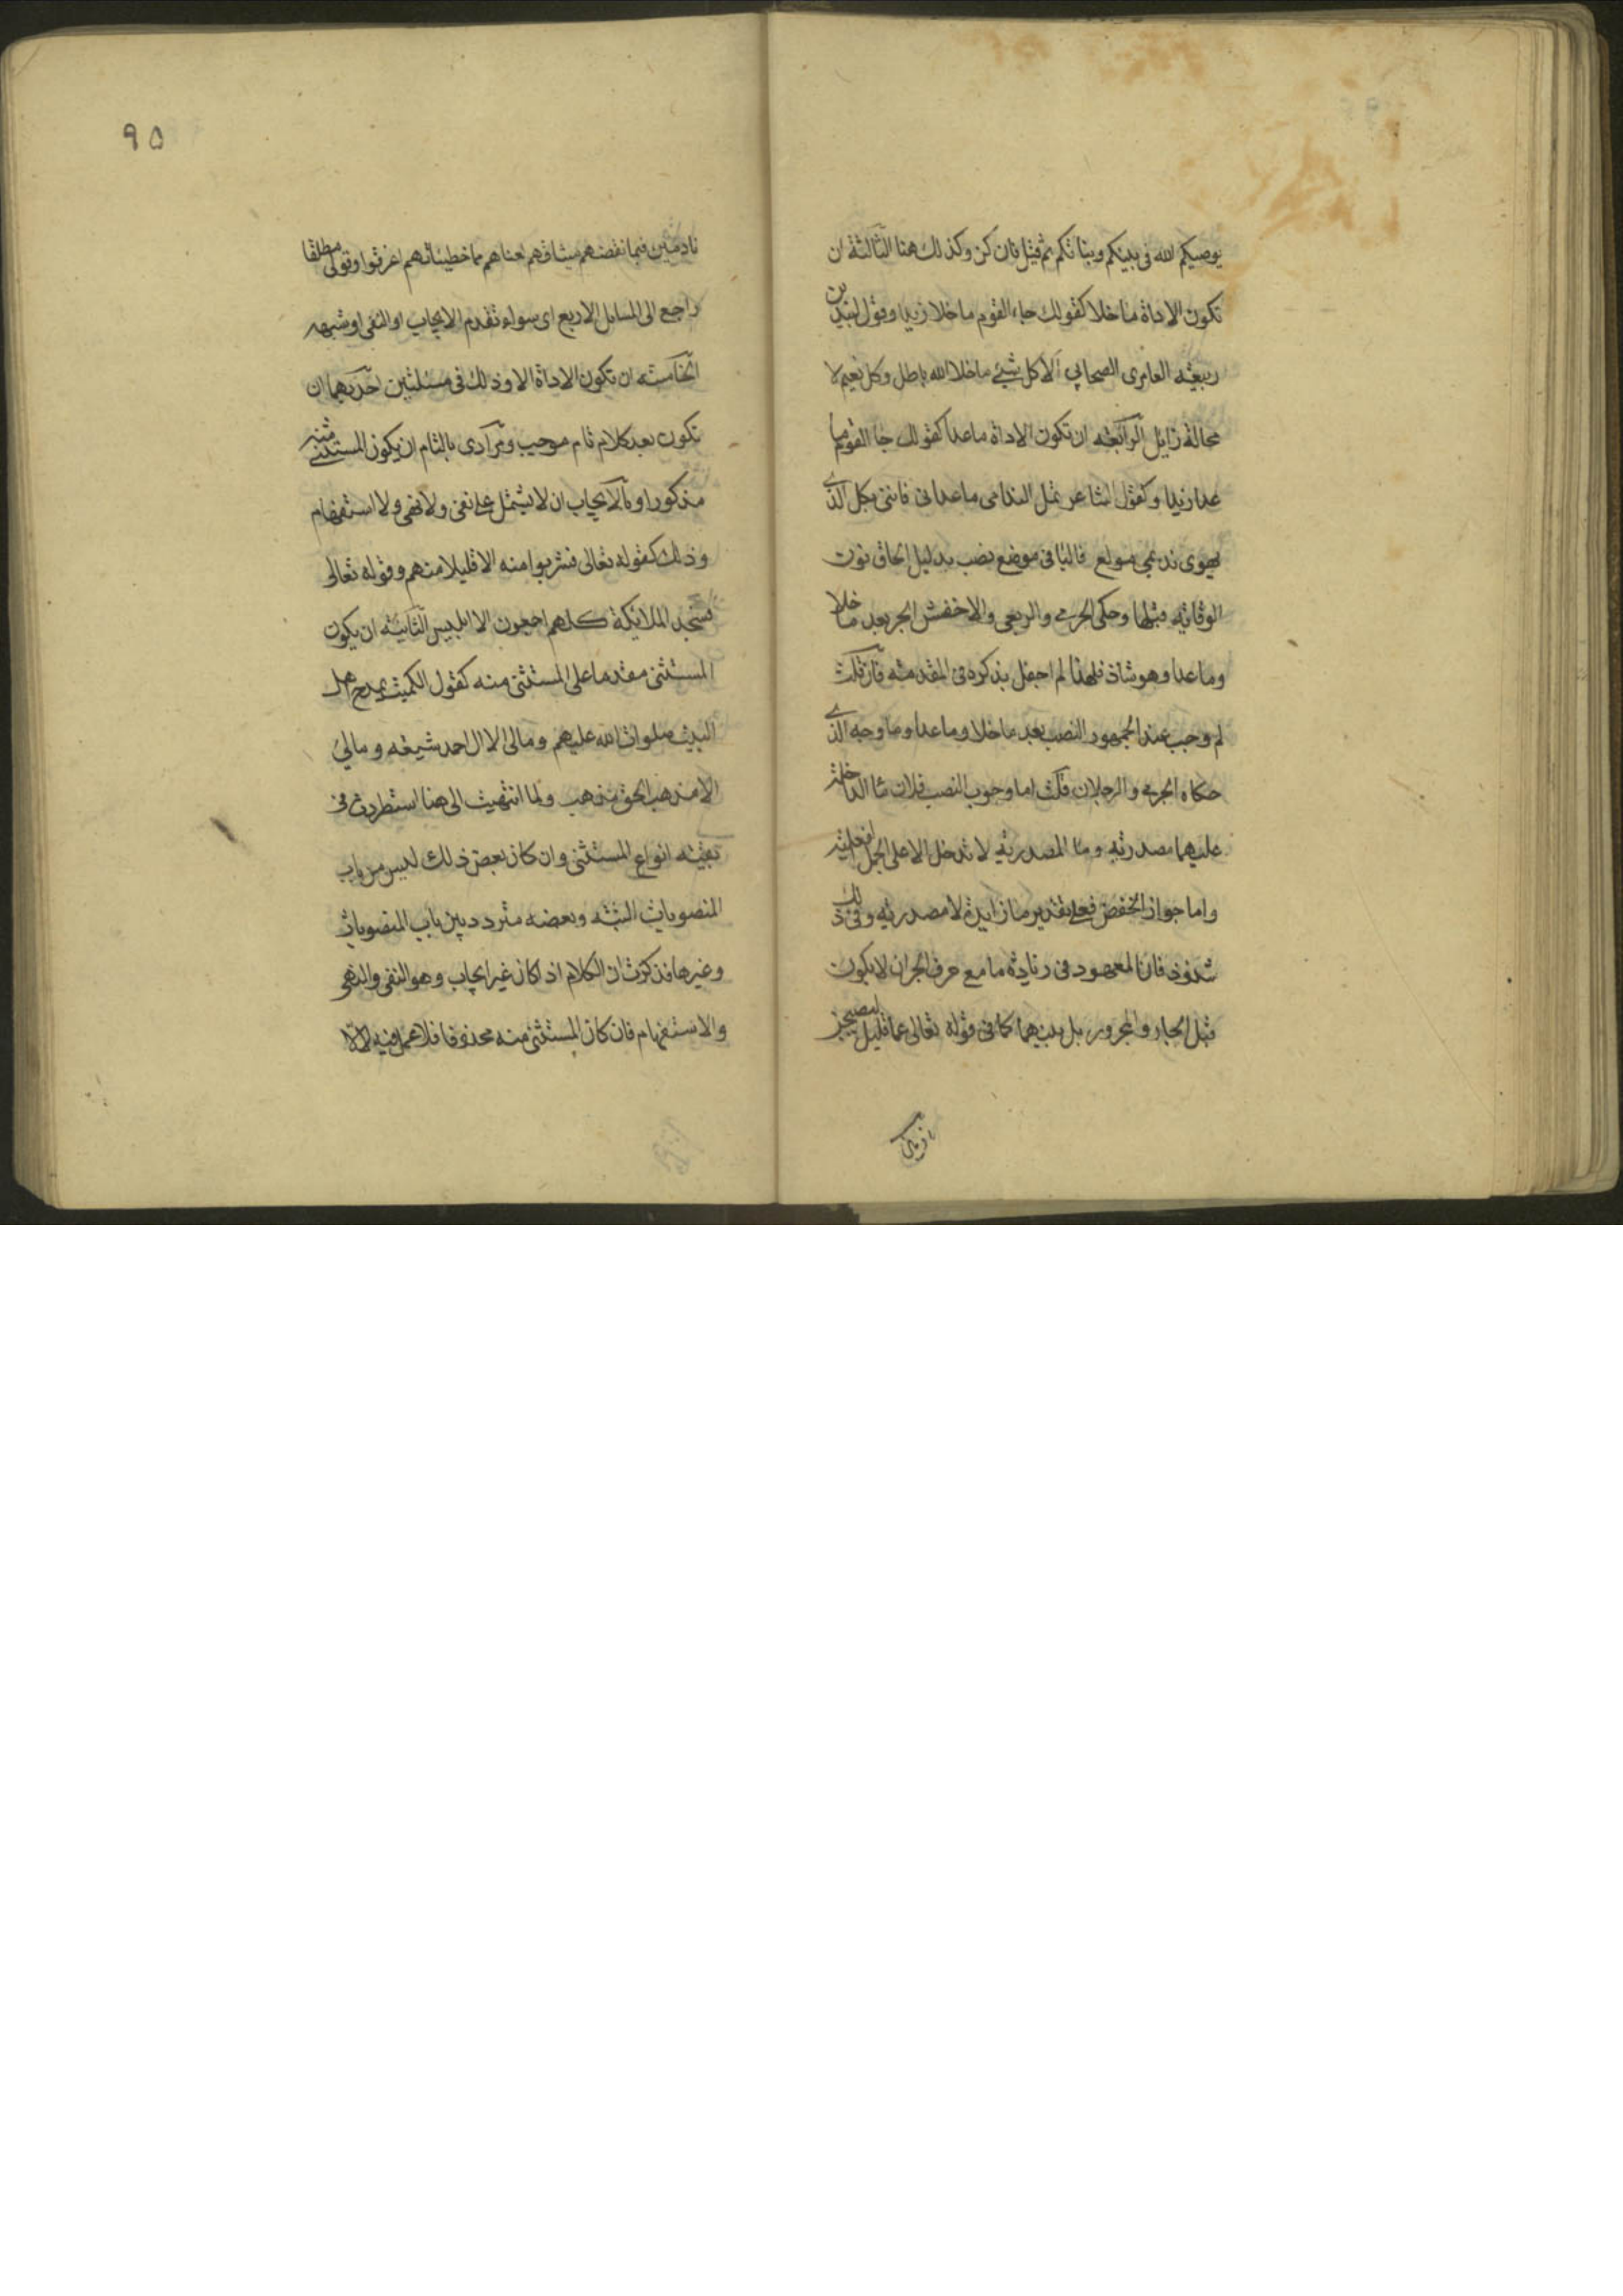 يوصيكم الله فى بنيكم وبناتكم ثم قيل فان كن وكذلك هنا الثالثة ان
تكون الاداة ما خلا كقولك جاء القوم ما خلا زيدا وقول لبيد بن
ربيعة العامرى الصحابي الا كل شيئ ما خلا الله باطل وكل نعيم لا
محالة زايل الرابعة ان تكون الاداة ماعدا كقولك جا القوم ما
عدا زيدا وكقول الشاعر تمل الندامى ماعدانى فاننى بكل الذى
يهوى نديمي مولع فاليا فى موضع نصب بدليل الحاق نون
الوقاية قبلها وحكى الجرمي والربعى والاخفش الجر بعد ما خلا
وما عدا وهو شاذ فلهذا لم احفل بذكره فى المقدمة فان قلت
لم وجب عند الجمهور النصب بعد ما خلا وما عدا وما وجه الذى
حكاه الجرمي والرجلان قلت اما وجوب النصب فلان ما الداخلة
عليهما مصدرية وما المصدرية لا تدخل الا على الجمل الفعلية
واما جواز الخفض فعلى تقدير ما زايدة لا مصدرية وفى ذلك
شذوذ فان المعهود فى زيادة ما مع حرف الجر ان لا يكون
قبل الجار والمجرور بل بينهما كما فى قوله تعالى عما قليل ليصبحن
٩٥
نادمين فبما نقضهم ميثاقهم لعناهم مما خطيئاتهم اغرقوا وقولى مطلقا
راجع الى المسايل الاربع اى سواء تقدم الايجاب او النفى او شبهه
الخامسة ان تكون الاداة الا وذلك فى مسئلتين احديهما ان
تكون بعد كلام تام موجب ومرادى بالتام ان يكون المستثنى منه
مذكورا وبالايجاب ان لا يشتمل على نفى ولا نهى ولا استفهام
وذلك كقوله تعالى فشربوا منه الا قليلا منهم وقوله تعالى
فسجد الملايكة كلهم اجمعون الا ابليس الثانية ان يكون
المستثنى مقدما على المستثنى منه كقول الكميت يمدح اهل
البيت صلوات الله عليهم ومالى الا ال احمد شيعة ومالي
الا مذهب الحق مذهب ولما انتهيت الى هنا استطردت فى
بقية انواع المستثنى وان كان بعض ذلك ليس من باب
المنصوبات البتة وبعضه متردد بين باب المنصوبات
وغيرها فذكرت ان الكلام اذا كان غير ايجاب وهو النفى والنهى
والاستفهام فان كان المستثنى منه محذوفا فلا عمل فيه لالا